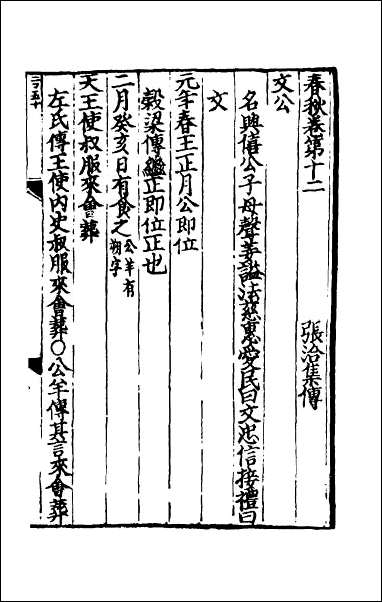 春秋卷第十二
張洽集傳
文公
名興僖公子母聲姜謚法慈惠愛民曰文忠信接禮曰
文
元年春王正月公即位
穀梁傳繼正即位正也
二月癸亥日有食之公羊有朔字
天王使叔服來會葬
左氏傳王使內史叔服來會葬○公羊傳其言來會葬